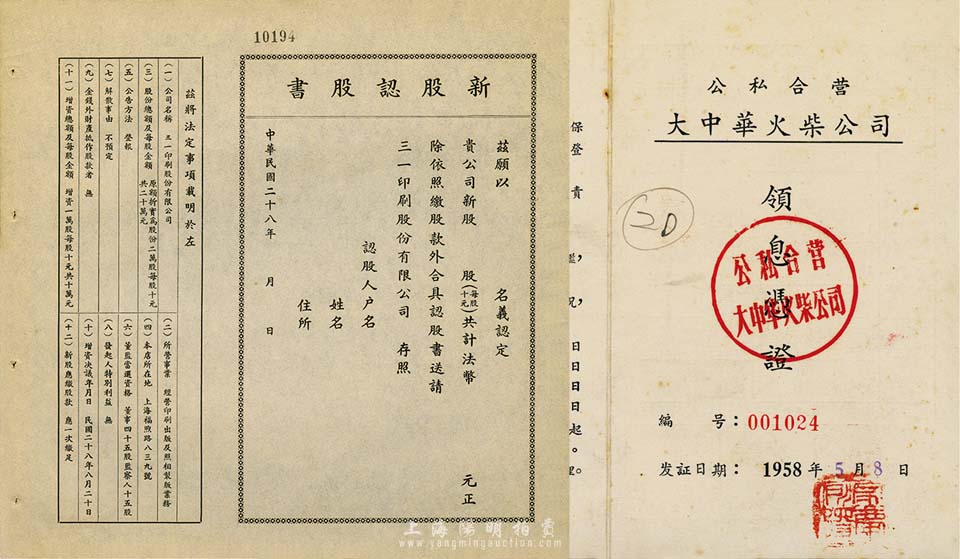 10194
新股認股書
茲願以　　　名義認定
貴公司新股　　股(每股十元)共計法幣　　　元正
除依照繳股款外合具認股書送請
三一印刷股份有限公司　存照
認股人户名
姓名
住所
中華民國二十八年　　月　　日
茲將法定事項載明於左
(一)公司名稱　三一印刷股份有限公司
(二)所營事業　經營印刷出版及照相製版業務
(三)股份總額及每股金額　原額折實爲股份二萬股每股十元共二十萬元
(四)本店所在地　上海福煦路八三九號
(五)公告方法　登報
(六)董監當選資格　董事四十五股監察八十五股
(七)解散事由　不預定
(八)發起人特別利益　無
(九)金錢外財產抵作股款者　無
(十)增資决議年月日　民國二十八年八月二十日
(十一)增資總額及每股金額　增資一萬股每股十元共十萬元
(十二)新股應繳股款　應一次繳足
保登　貴
日日日日起。
20
公私合营
大中華火柴公司
領息憑證
公私合营
大中华火柴公司
編　号：001024
发证日期：1958年5月8日
上海陽明拍賣
www.yangmingauction.com